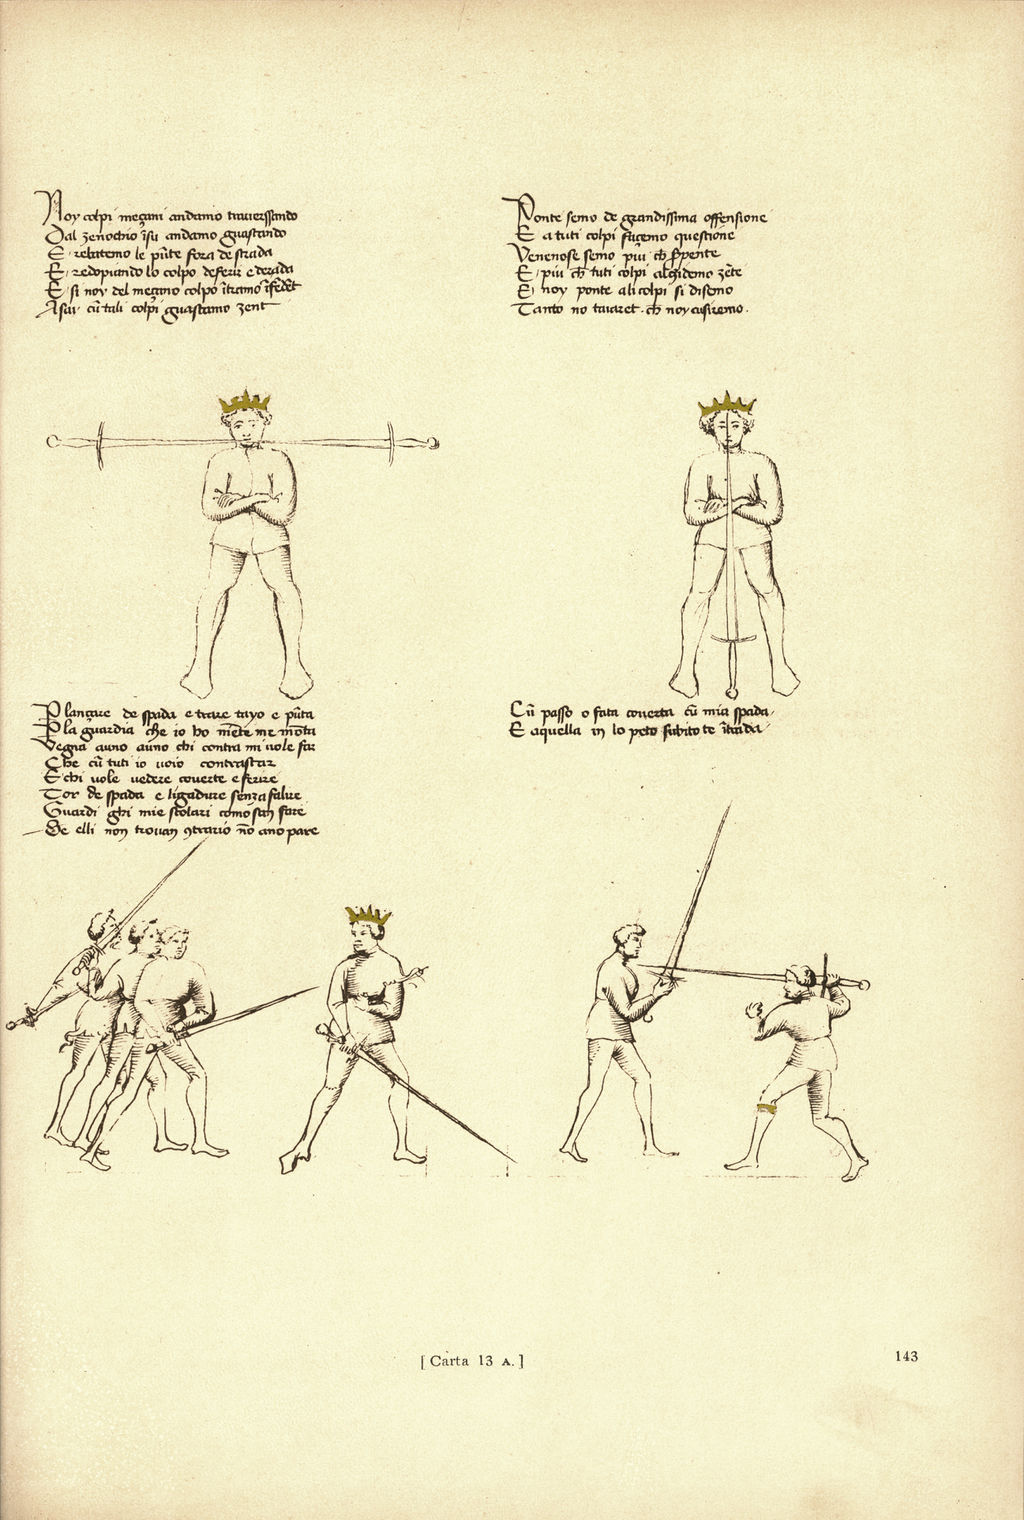 Noy colpi meçani andamo trauerssando
Dal zenochio ĩsu andamo guastando
E· rebatemo le pũte fora de strada
E· redopiando lo colpo deferir e derada
E si noy del meçano colpo ĩtramo ĩfedẽt
Asai· cũ tali colpi guastamo zent
Ponte semo de grandissima offensione
E a tuti colpi façemo questione
Venenose semo piu ch̃ serpente
E· piu ch̃ tuti colpi alçidemo zẽte
E noy ponte ali colpi si disemo
Tanto no taiaret· ch̃ noy cusiremo·
P lançare de spada e trare tayo e pũta
P la guardia che io ho mẽte me mõta
Vegna auno auno chi contra mi uole far
Che cũ tuti io uoio contrastar
E chi uole uedere couerte e ferire
Tor de spada e ligadure senza falire
Guardi ghi mie scolari como san fare
Se elli non trouan 9trario nõ ano pare
Cũ passo o fata couerta cũ mia spada·
E aquella in lo peto subito te ĩtrada·
[Carta 13 A.]
143